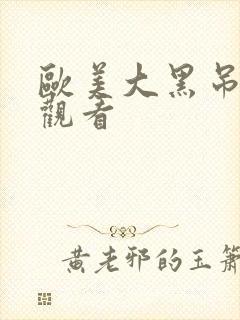 歐美大黑吊
觀看
黃老邪的玉簫